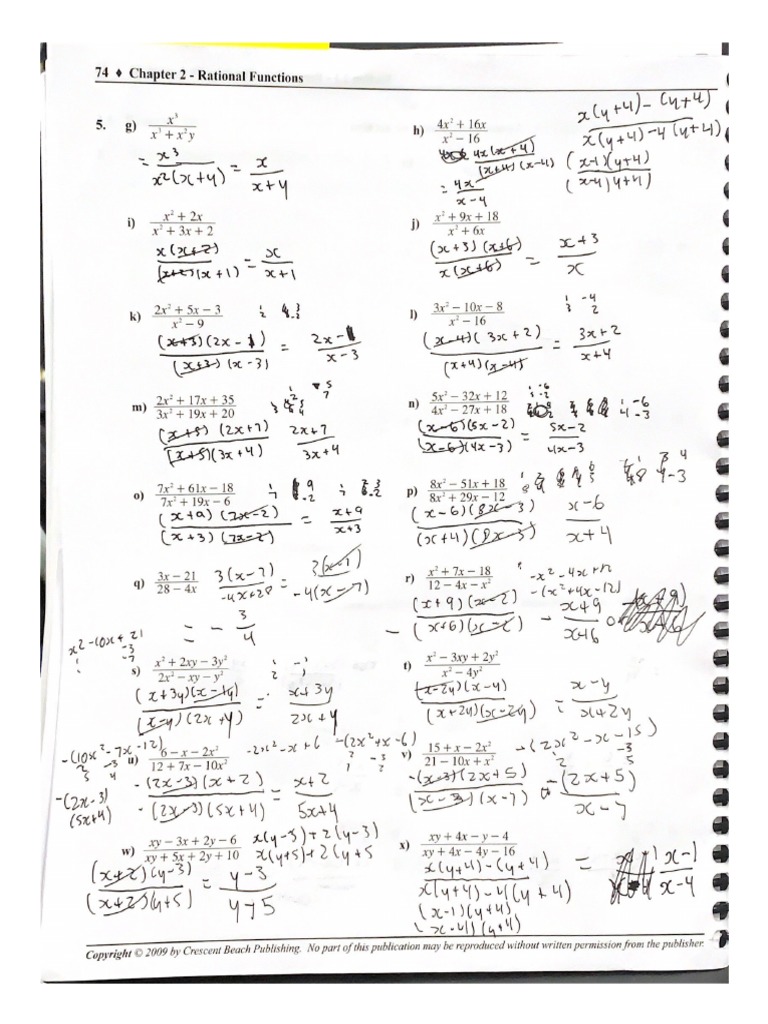 74 ♦ Chapter 2 - Rational Functions
5. g) x³ / (x³ + x²y)
= x³ / x²(x+y) = x / (x+y)
h) (4x² + 16x) / (x² − 16)
4x(x+4) / (x+4)(x-4)
= 4x / (x-4)
x(y+4) - (y+4) / x(y+4) - 4(y+4)
(x-1)(y+4) / (x-4)(y+4)
i) (x² + 2x) / (x² + 3x + 2)
x(x+2) / (x+2)(x+1) = x / (x+1)
j) (x² + 9x + 18) / (x² + 6x)
(x+3)(x+6) / x(x+6) = (x+3) / x
k) (2x² + 5x − 3) / (x² − 9)
(x+3)(2x-1) / (x+3)(x-3) = (2x-1) / (x-3)
l) (3x² − 10x − 8) / (x² − 16)
1 -4
3 2
(x-4)(3x+2) / (x+4)(x-4) = (3x+2) / (x+4)
m) (2x² + 17x + 35) / (3x² + 19x + 20)
(x+5)(2x+7) / (x+5)(3x+4) (2x+7) / (3x+4)
n) (5x² − 32x + 12) / (4x² − 27x + 18)
1 -6
4 -3
(x-6)(5x-2) / (x-6)(4x-3) = (5x-2) / (4x-3)
o) (7x² + 61x − 18) / (7x² + 19x − 6)
(x+9)(7x-2) / (x+3)(7x-2) = (x+9) / (x+3)
p) (8x² − 51x + 18) / (8x² + 29x − 12)
(x-6)(8x-3) / (x+4)(8x-3) (x-6) / (x+4)
q) (3x − 21) / (28 − 4x)
3(x-7) / (-4x+28) = 3(x-7) / -4(x-7)
= - 3/4
r) (x² + 7x − 18) / (12 − 4x − x²)
-x² -4x+12
-(x²+4x-12)
- (x+9)(x-2) / (x+6)(x-2) - (x+9) / (x+6)
x²-10x+21
-3
-7
s) (x² + 2xy − 3y²) / (2x² − xy − y²)
(x+3y)(x-1y) / (x-y)(2x+y) = (x+3y) / (2x+y)
t) (x² − 3xy + 2y²) / (x² − 4y²)
(x-2y)(x-y) / (x+2y)(x-2y) = (x-y) / (x+2y)
-(10x²-7x-12)
2 -3
5 4
-(2x-3)
(5x+4)
u) (6 − x − 2x²) / (12 + 7x − 10x²)
-2x²-x+6 -(2x²+x-6)
-(2x-3)(x+2) / -(2x-3)(5x+4) = (x+2) / (5x+4)
v) (15 + x − 2x²) / (21 − 10x + x²)
-(2x²-x-15)
-(x-3)(2x+5) / (x-3)(x-7) -(2x+5) / (x-7)
w) (xy − 3x + 2y − 6) / (xy + 5x + 2y + 10)
x(y-3)+2(y-3) / x(y+5)+2(y+5
(x+2)(y-3) / (x+2)(y+5) = (y-3) / (y+5)
x) (xy + 4x − y − 4) / (xy + 4x − 4y − 16)
x(y+4)-(y+4) / x(y+4)-4(y+4) = (x-1) / (x-4)
(x-1)(y+4)
(x-4)(y+4)
Copyright © 2009 by Crescent Beach Publishing. No part of this publication may be reproduced without written permission from the publisher.